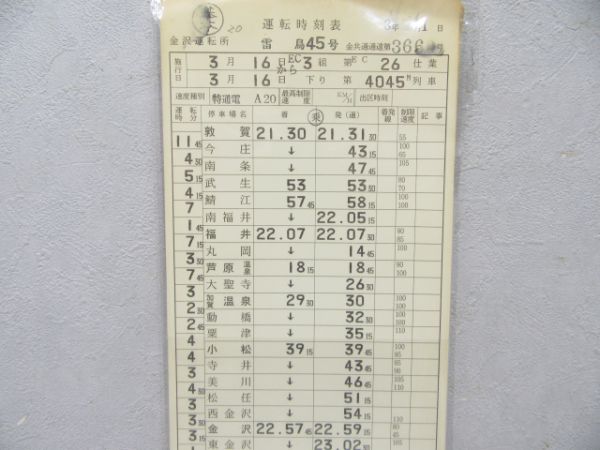 20
運転時刻表 3年 1日
金沢運転所 雷鳥45号 金共通通達第366 号
施行日 3月16日から EC3組 第EC 26仕業
3月16日 下り 第4045M列車
速度種別 特通電 A20 最高制限速度 KM/H 出区時刻
運転時分 停車場名 着 乗 発(通) 着発線 制限速度 記事
敦賀 21.30 21.31 30 55
11 45
今庄 ↓ 43 15 100 65
4 30
南条 ↓ 47 45 105
5 15
武生 53 53 30 80 70
4 15
鯖江 57 45 58 15 100 100
7
南福井 ↓ 22.05 15
1 45
福井 22.07 22.07 30 80 85
7
丸岡 ↓ 14 45
3 30
芦原温泉 18 15 18 45 90 100
7 45
大聖寺 ↓ 26 30
3
加賀温泉 29 30 30 100 100
2 30
動橋 ↓ 32 30 100 110
2 45
粟津 ↓ 35 15
4
小松 39 15 39 45 100 85
4
寺井 ↓ 43 45 95 100
3
美川 ↓ 46 45 105 110
4 30
松任 ↓ 51 15
3
西金沢 ↓ 54 15 110
3 30
金沢 22.57 45 22.59 15 80 45
3 15
東金沢 ↓ 23.02 30 105